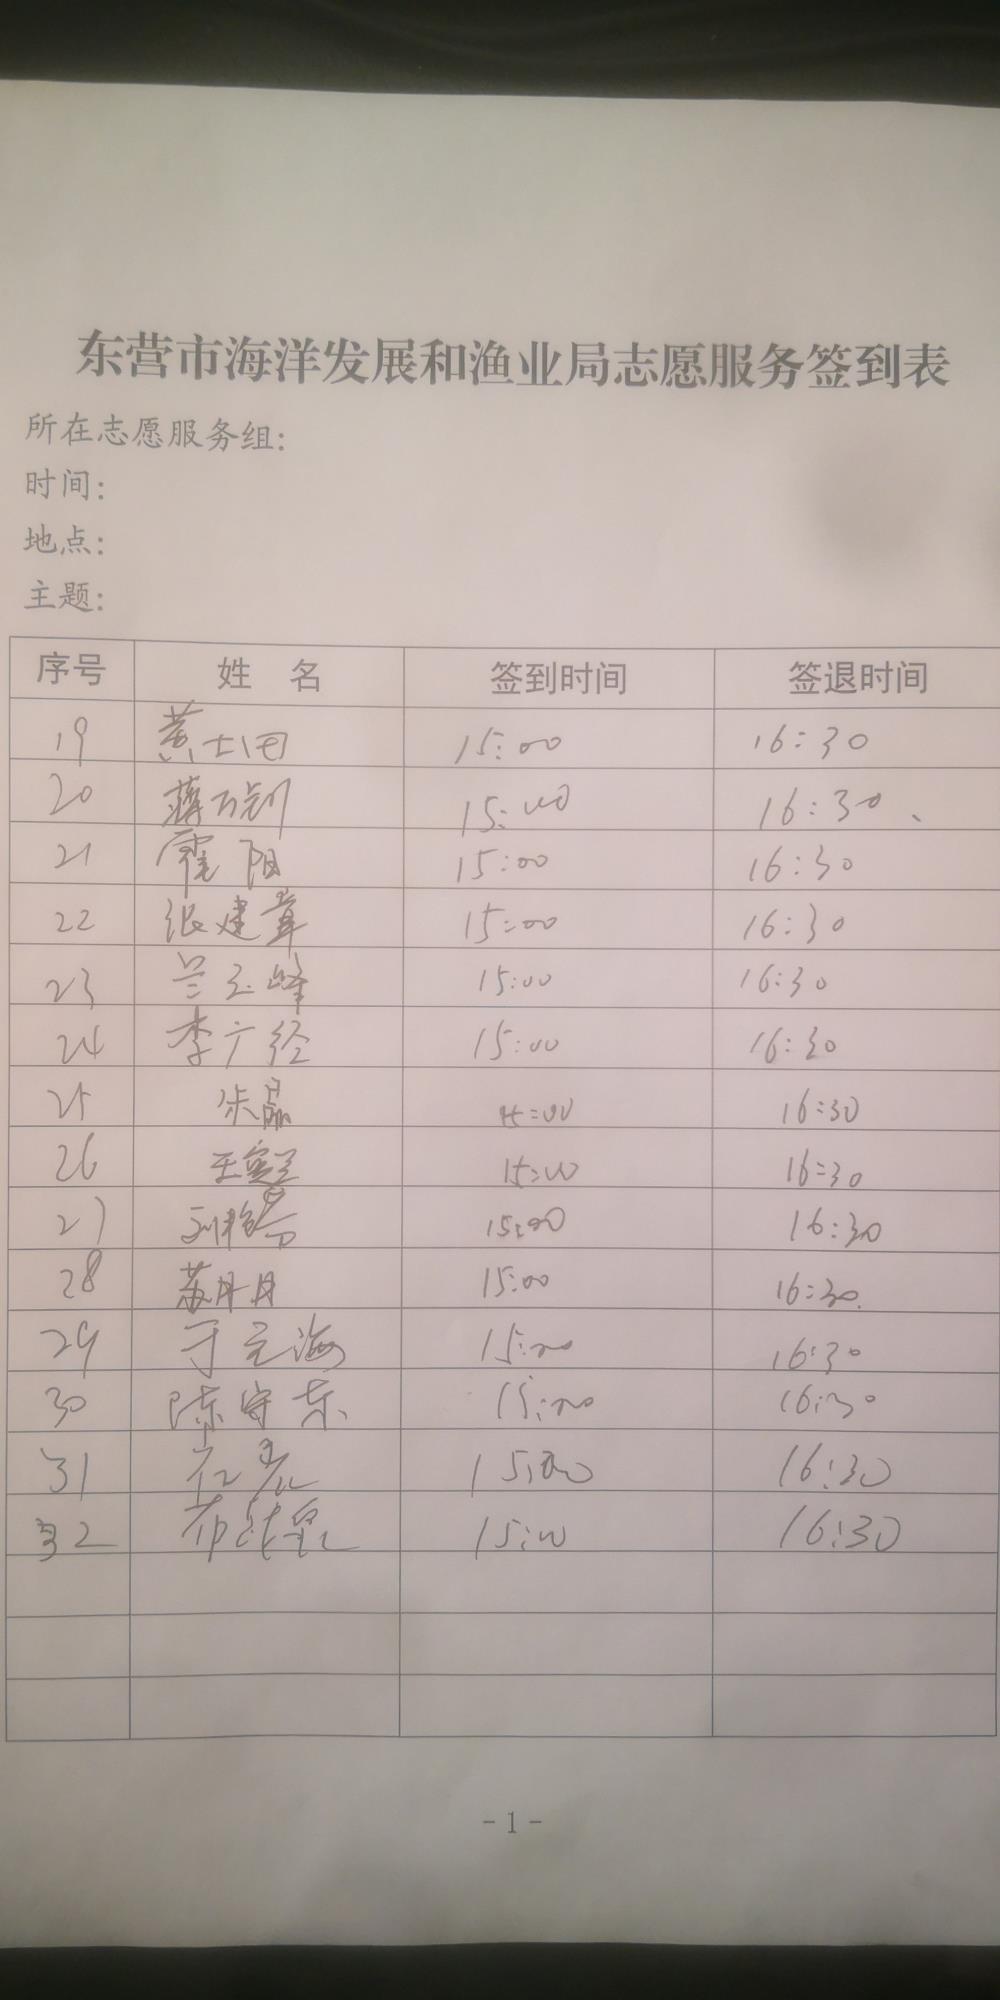 东营市海洋发展和渔业局志愿服务签到表
所在志愿服务组:
时间:
地点:
主题:
序号 姓 名 签到时间 签退时间
19 黄士田 15:00 16:30
20 蒋万钊 15:00 16:30
21 霍阳 15:00 16:30
22 张建章 15:00 16:30
23 兰玉峰 15:00 16:30
24 李广经 15:00 16:30
25 朱晶 15:00 16:30
26 王 15:00 16:30
27 刘 15:00 16:30
28 苏丹丹 15:00 16:30
29 于立海 15:00 16:30
30 陈守东 15:00 16:30
31 15:00 16:30
32 15:00 16:30
- 1 -